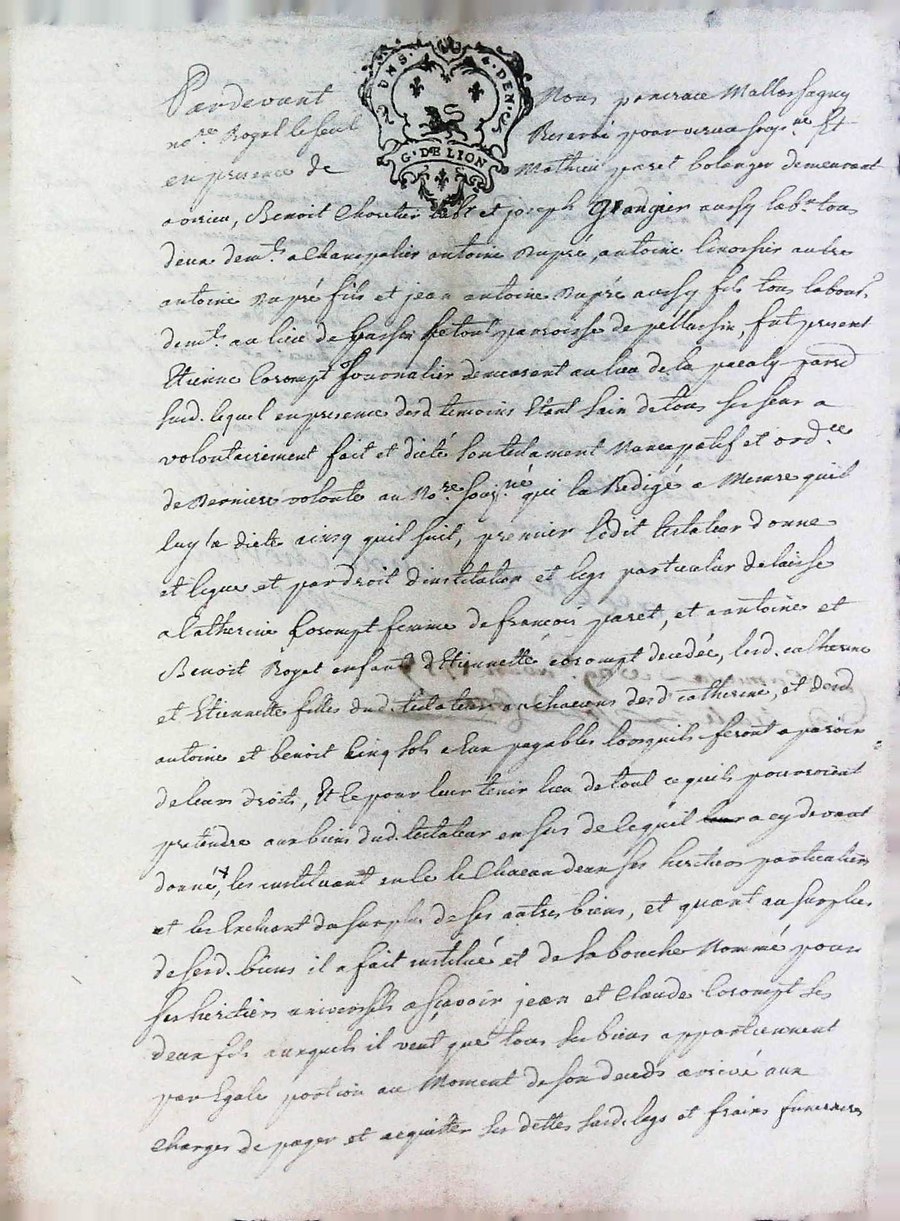 UN S. 4. DEN.
G. DE LION
Pardevant Nous pancrace Mallassagny
no.re Royal le seul Reservé pour virieu souss.né Et
en presence de Mathieu paret bolanger demeurant
a virieu, Benoit Chorlier lab.r et joseph Grangier aussy lab.r tous
deux dem.ts a Chanepalier antoine Dupré, antoine linossier autre
antoine Dupré fils et jean antoine Dupré aussy fils tous labour.s
dem.ts au lieu de paroisse de pellussin, fut present
Etienne Corompt Journalier demeurant au lieu de la
susd. lequel en presence desd temoins Etant sain de tous ses sens a
volontairement fait et dicté son testament Noncupatif et ord.ce
de Derniere volonté au No.re souss.né qui la Redigé a Mesure quil
luy la dicte ainsy quil suit, premier ledit testateur donne
et legue et par droit dinstitution et legs particulier delaisse
a Catherine Corompt femme de françois paret, et a antoine et
Benoit Royet enfants d'Etiennette corompt decedée, lesd. catherine
et Etiennette filles dud. testateur a chacuns desd catherine, et desd
antoine et benoit Cinq sols a Eux payables lorsquils feront aparoir
de leurs droits, Et ce pour leur tenir lieu de tout ce quils pourroient
pretendre aux biens dud. testateur en sus de ce quil a cy devant
donné, les instituant en ce le Chacun deux ses heritiers particuliers
et les Excluant du surplus de ses autres biens, et quant au surplus
de sesd. biens il a fait institué et de sa bouche Nommé pour
ses heritiers universels asçavoir jean et Claude Corompt ses
deux fils auxquels il veut que tous ses biens appartiennent
par Egale portion au Moment de son deceds arrivé aux
charges de payer et acquitter ses dettes susd. legs et fraix funeraires